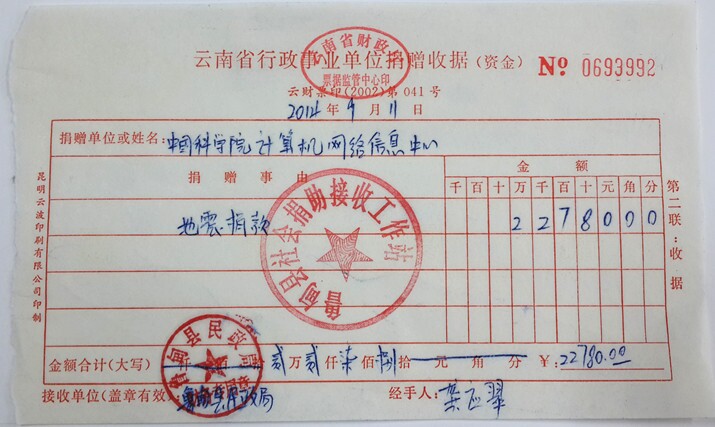 云南省行政事业单位捐赠收据(资金) № 0693992
云南省财政厅
票据监管中心印
云财票印(2002)第041号
2014年9月11日
捐赠单位或姓名:中国科学院计算机网络信息中心
捐赠事由 金额
千百十万千百十元角分
地震捐款 2278000
鲁甸县社会捐助接收工作站
鲁甸县民政局
金额合计(大写) 贰万贰仟柒佰捌拾元 角 分 ¥:22780.00
接收单位(盖章有效):鲁甸县民政局 经手人:
第二联:收据
昆明云波印刷有限公司印制